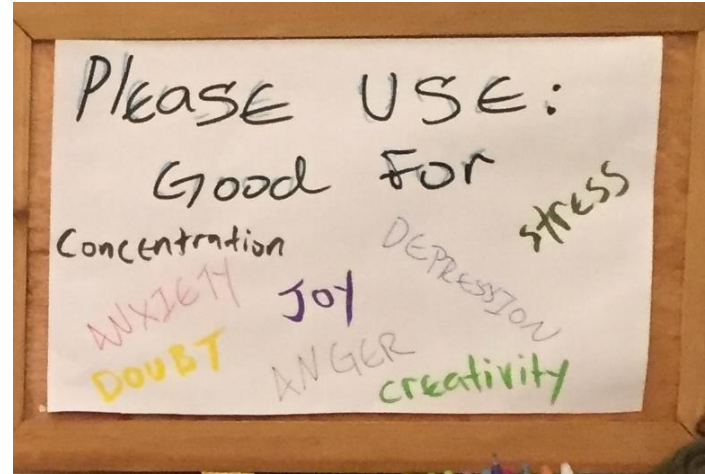 PlEASE USE:
Good For
STrESS
ConcEntration
DEPRESSION
ANXIETY
Joy
DOUBT
ANGER
crEativity